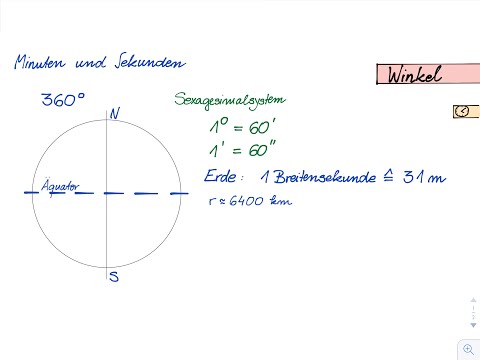 Minuten und Sekunden
Winkel
360°
Sexagesimalsystem
N
1° = 60'
1' = 60"
Äquator
Erde: 1 Breitensekunde ≙ 31 m
r ≈ 6400 km
S
1
3